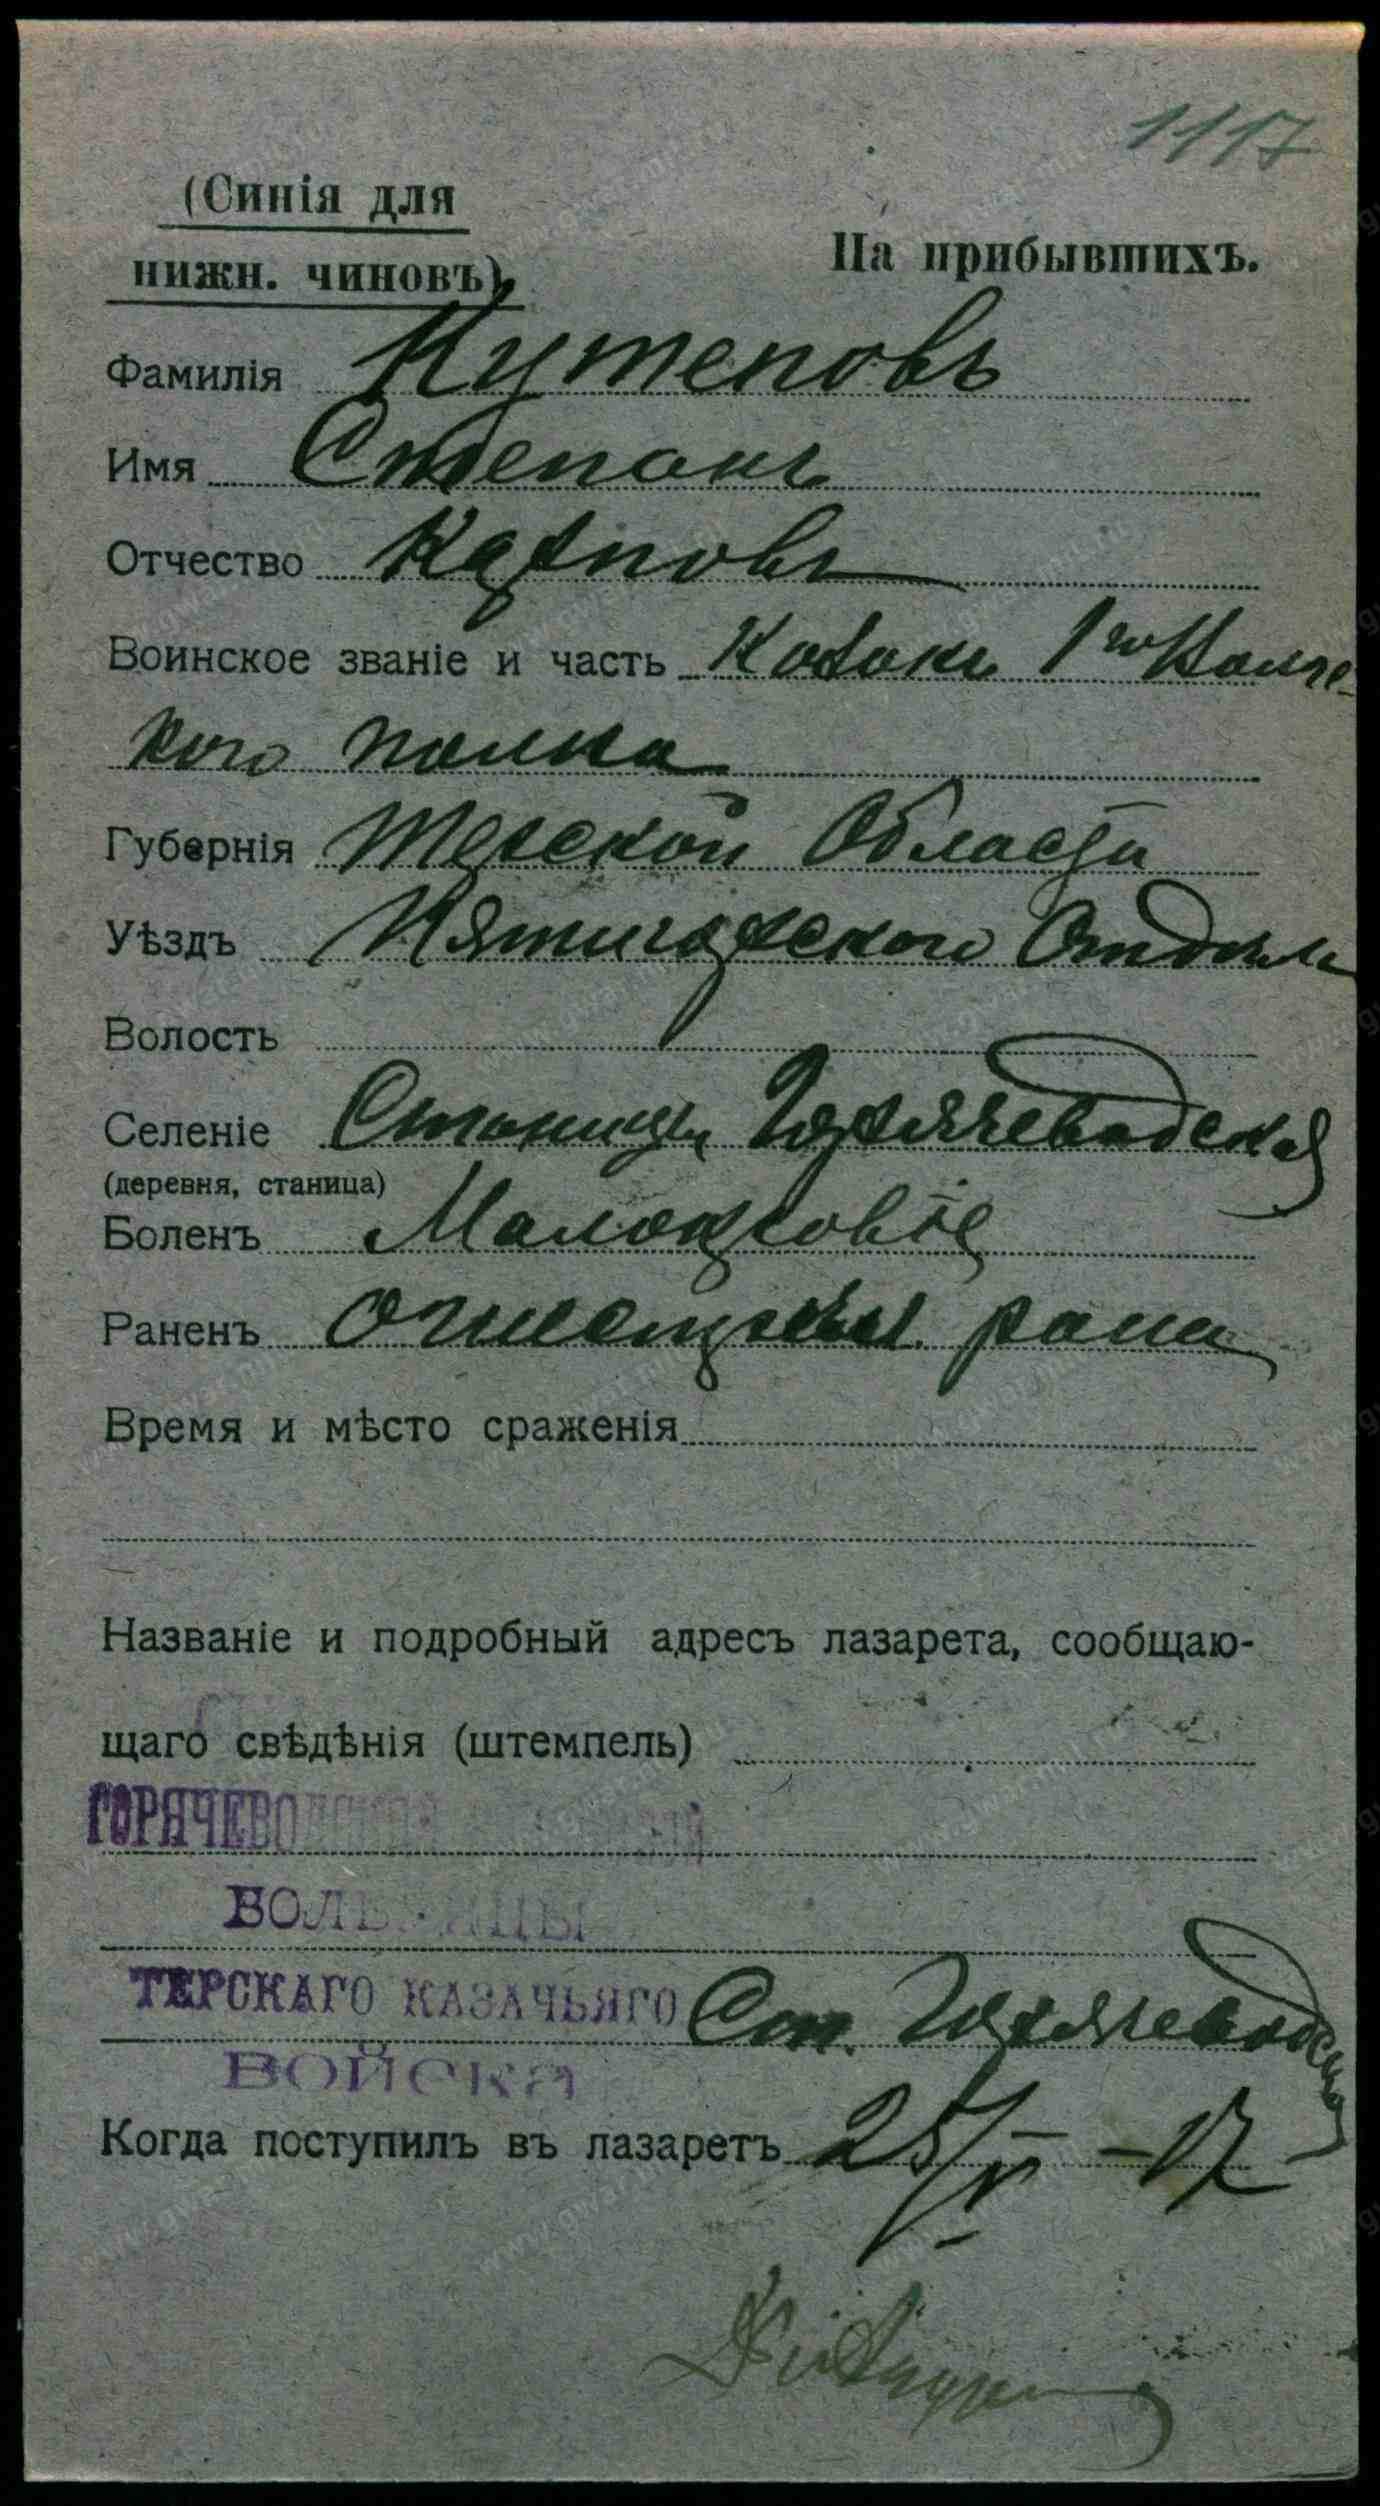 1117
(Синія для
нижн. чиновъ)
На прибывшихъ.
Фамилія Кутеповъ
Имя Степанъ
Отчество Карповъ
Воинское званіе и часть Козакъ 1го Волгс-
кого полка
Губернія Терской Области
Уѣздъ Пятигорского Отдѣла
Волость
Селеніе Станицы Горячеводская
(деревня, станица)
Боленъ Малокровіе
Раненъ огнестрѣл. рана
Время и мѣсто сраженія
Названіе и подробный адресъ лазарета, сообщаю-
щаго свѣдѣнія (штемпель)
ГОРЯЧЕВОДСКАЯ
БОЛЬНИЦЫ
ТЕРСКАГО КАЗАЧЬЯГО Ст. Горячеводская
ВОЙСКА
Когда поступилъ въ лазаретъ 25/V-17